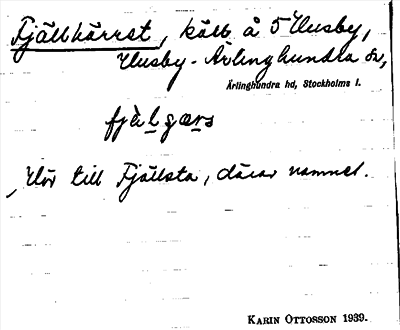 Fjällkärret, kälb å 5 Husby,
Husby-Ärlinghundra sn,
Ärlinghundra hd, Stockholms l.
fjälgærs
Hör till Fjällsta, därav namnet.
KARIN OTTOSSON 1939.